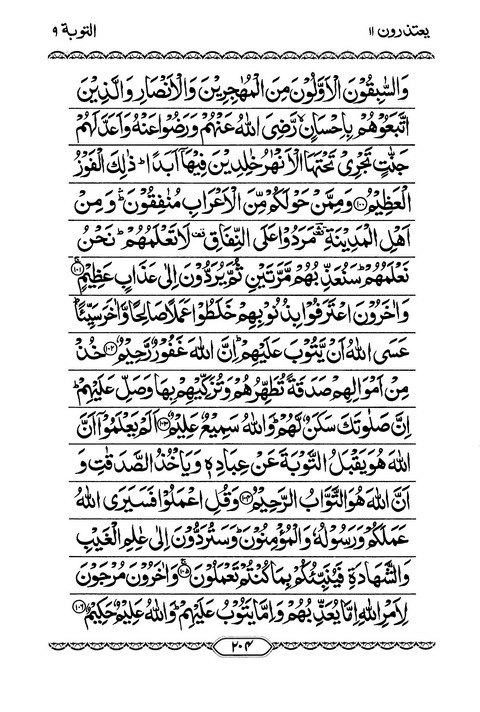 يعتذرون ١١
التوبة ٩
وَالسّٰبِقُوْنَ الْاَوَّلُوْنَ مِنَ الْمُهٰجِرِيْنَ وَالْاَنْصَارِ وَالَّذِيْنَ
اتَّبَعُوْهُمْ بِاِحْسَانٍ ۙ رَّضِيَ اللّٰهُ عَنْهُمْ وَرَضُوْا عَنْهُ وَاَعَدَّ لَهُمْ
جَنّٰتٍ تَجْرِيْ تَحْتَهَا الْاَنْهٰرُ خٰلِدِيْنَ فِيْهَآ اَبَدًا ؕ ذٰلِكَ الْفَوْزُ
الْعَظِيْمُ ﴿۱۰۰﴾ وَمِمَّنْ حَوْلَكُمْ مِّنَ الْاَعْرَابِ مُنٰفِقُوْنَ ؕۛ وَ مِنْ
اَهْلِ الْمَدِيْنَةِ ؔۛ مَرَدُوْا عَلَى النِّفَاقِ ۫ لَا تَعْلَمُهُمْ ؕ نَحْنُ
نَعْلَمُهُمْ ؕ سَنُعَذِّبُهُمْ مَّرَّتَيْنِ ثُمَّ يُرَدُّوْنَ اِلٰى عَذَابٍ عَظِيْمٍ ﴿۱۰۱﴾
وَاٰخَرُوْنَ اعْتَرَفُوْا بِذُنُوْبِهِمْ خَلَطُوْا عَمَلًا صَالِحًا وَّاٰخَرَ سَيِّئًا ؕ
عَسَى اللّٰهُ اَنْ يَّتُوْبَ عَلَيْهِمْ ؕ اِنَّ اللّٰهَ غَفُوْرٌ رَّحِيْمٌ ﴿۱۰۲﴾ خُذْ
مِنْ اَمْوَالِهِمْ صَدَقَةً تُطَهِّرُهُمْ وَتُزَكِّيْهِمْ بِهَا وَصَلِّ عَلَيْهِمْ ؕ
اِنَّ صَلٰوتَكَ سَكَنٌ لَّهُمْ ؕ وَاللّٰهُ سَمِيْعٌ عَلِيْمٌ ﴿۱۰۳﴾ اَلَمْ يَعْلَمُوْٓا اَنَّ
اللّٰهَ هُوَ يَقْبَلُ التَّوْبَةَ عَنْ عِبَادِهٖ وَيَاْخُذُ الصَّدَقٰتِ وَ
اَنَّ اللّٰهَ هُوَ التَّوَّابُ الرَّحِيْمُ ﴿۱۰۴﴾ وَقُلِ اعْمَلُوْا فَسَيَرَى اللّٰهُ
عَمَلَكُمْ وَرَسُوْلُهٗ وَالْمُؤْمِنُوْنَ ؕ وَسَتُرَدُّوْنَ اِلٰى عٰلِمِ الْغَيْبِ
وَالشَّهَادَةِ فَيُنَبِّئُكُمْ بِمَا كُنْتُمْ تَعْمَلُوْنَ ﴿۱۰۵﴾ وَاٰخَرُوْنَ مُرْجَوْنَ
لِاَمْرِ اللّٰهِ اِمَّا يُعَذِّبُهُمْ وَاِمَّا يَتُوْبُ عَلَيْهِمْ ؕ وَاللّٰهُ عَلِيْمٌ حَكِيْمٌ ﴿۱۰۶﴾
۲۰۴